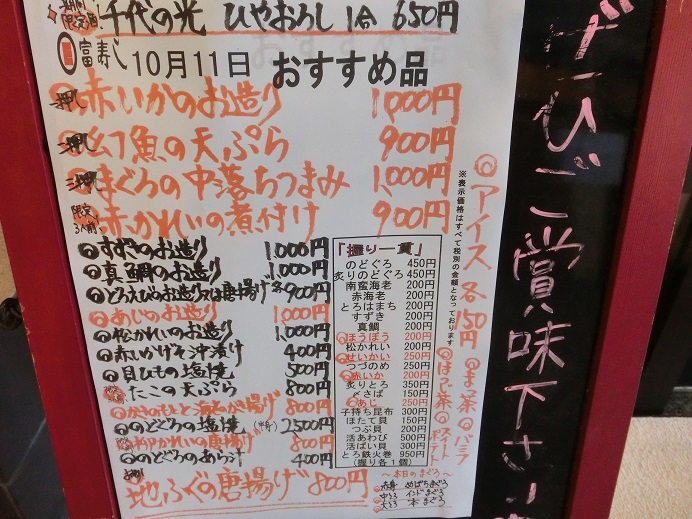 千代の光 ひやおろし 1合 650円
富寿し 10月11日 おすすめ品
押し 赤いかのお造り 1,000円
押し 幻魚の天ぷら 900円
押し まぐろの中落ちつまみ 1,000円
限定3人前 赤かれいの煮付け 900円
すずきのお造り 1,000円
真鯛のお造り 1,000円
どろえびのお造り又は唐揚げ 各900円
あじのお造り 1,000円
松かれいのお造り 1,000円
赤いかげそ沖漬け 400円
貝ひもの塩焼 500円
たこの天ぷら 800円
かきのもとと海老かき揚げ 800円
のどぐろの塩焼 (半身) 2500円
かれいの唐揚げ 800円
のどぐろのあら汁 400円
地ふぐの唐揚げ 800円
「握り一貫」
のどぐろ 450円
炙りのどぐろ 450円
南蛮海老 200円
赤海老 200円
とろはまち 200円
すずき 200円
真鯛 200円
ほうぼう 200円
松かれい 200円
せいかい 250円
つづのめ 250円
赤いか 250円
炙りとろ 350円
〆さば 150円
あじ 250円
子持ち昆布 300円
ほたて貝 150円
つぶ貝 200円
活あわび 500円
活ばい貝 300円
とろ鉄火巻 950円
(握り各1個)
~本日のまぐろ~
赤身 めばちまぐろ
中とろ インドまぐろ
大とろ 本まぐろ
※表示価格はすべて税別の金額となっております
アイス 各150円
まっ茶 バニラ
ほうじ茶 スイートポテト
ぜひご賞味下さい